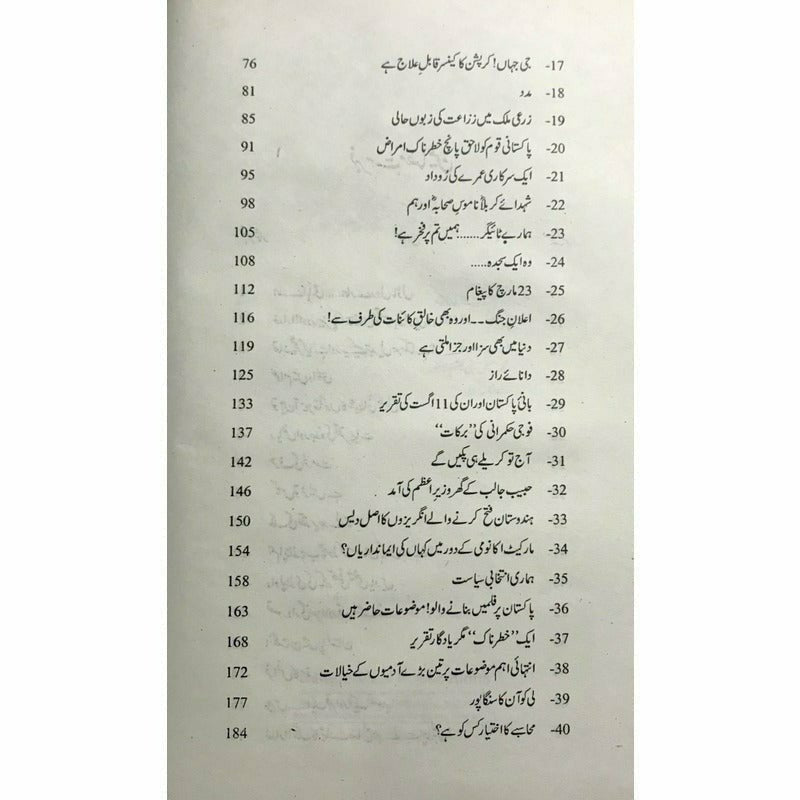 17- جی جہاں! کرپشن کا کینسر قابلِ علاج ہے 76
18- مدد 81
19- زرعی ملک میں زراعت کی زبوں حالی 85
20- پاکستانی قوم کو لاحق پانچ خطرناک امراض 91
21- ایک سرکاری عمرے کی رُوداد 95
22- شہدائے کربلاؓ ناموسِ صحابہؓ اور ہم 98
23- ہمارے ٹائیگر...... ہمیں تم پر فخر ہے! 105
24- وہ ایک سجدہ..... 108
25- 23 مارچ کا پیغام 112
26- اعلانِ جنگ۔۔ اور وہ بھی خالقِ کائنات کی طرف سے! 116
27- دنیا میں بھی سزا اور جزا ملتی ہے 119
28- دانائے راز 125
29- بانیٔ پاکستان اور ان کی 11 اگست کی تقریر 133
30- فوجی حکمرانی کی ”برکات“ 137
31- آج تو کریلے ہی پکیں گے 142
32- حبیب جالب کے گھر وزیرِ اعظم کی آمد 146
33- ہندوستان فتح کرنے والے انگریزوں کا اصل دیس 150
34- مارکیٹ اکانومی کے دور میں کہاں کی ایمانداریاں؟ 154
35- ہماری انتخابی سیاست 158
36- پاکستان پر فلمیں بنانے والو! موضوعات حاضر ہیں 163
37- ایک ”خطرناک“ مگر یادگار تقریر 168
38- انتہائی اہم موضوعات پر تین بڑے آدمیوں کے خیالات 172
39- لی کوآن کا سنگاپور 177
40- محاسبے کا اختیار کس کو ہے؟ 184